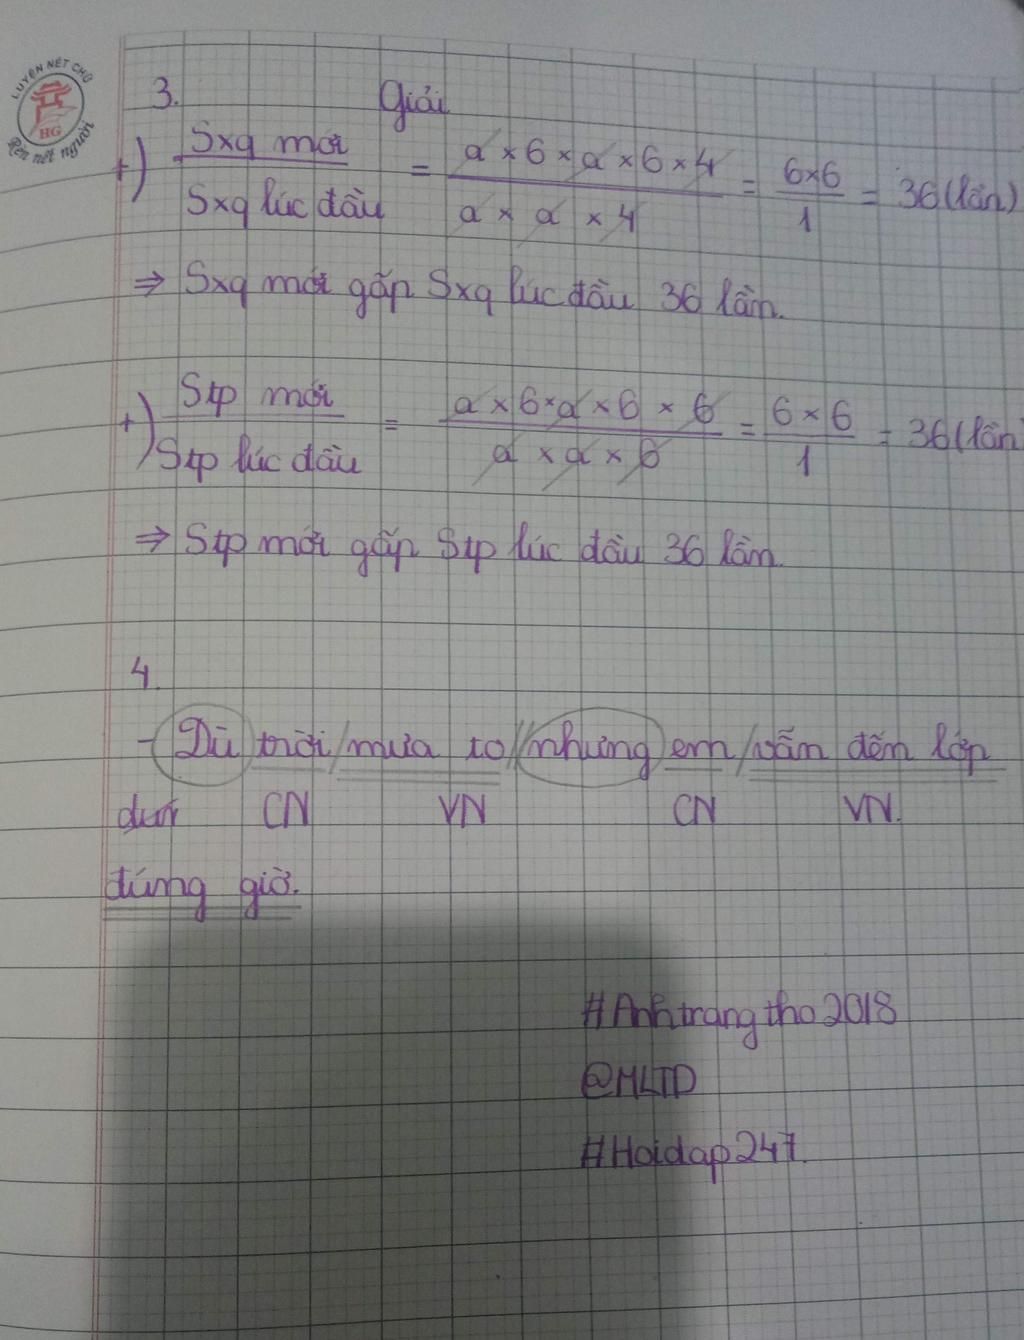 LUYỆN NÉT CHỮ
HG
Rèn nết người
3. Giải
+) Sxq mới / Sxq lúc đầu = a × 6 × a × 6 × 4 / a × a × 4 = 6×6 / 1 = 36 (lần)
⇒ Sxq mới gấp Sxq lúc đầu 36 lần.
+) Stp mới / Stp lúc đầu = a × 6 × a × 6 × 6 / a × a × 6 = 6 × 6 / 1 = 36 (lần)
⇒ Stp mới gấp Stp lúc đầu 36 lần.
4.
- Dù trời / mưa to // nhưng em / vẫn đến lớp
CN VN CN VN.
đúng giờ.
#Anhtrangtho2018
@MLTD
#Hoidap247